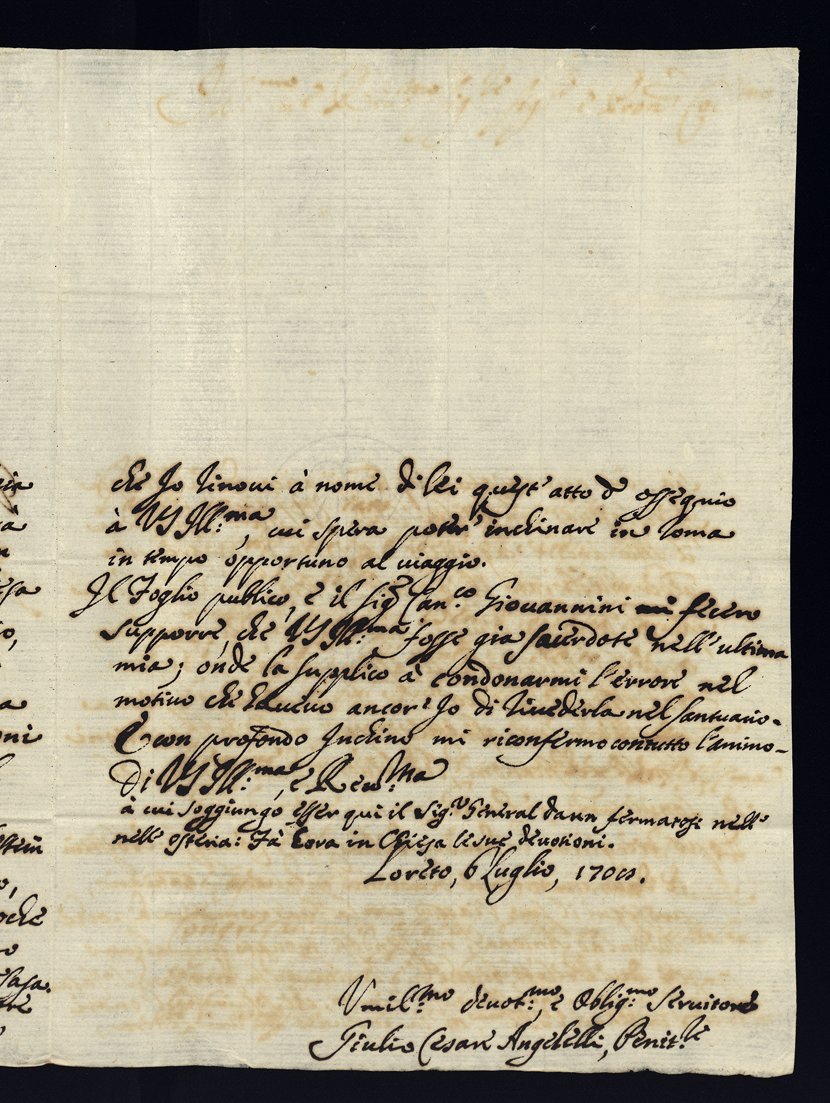 che Io rinovi à nome di lei quest'atto d'ossequio
à VS Ill:ma, cui spera poter' inchinare in Roma
in tempo opportuno al viaggio.
Il Foglio publico, e il Sig.r Can.co Giovannini mi fecero
supporre, che VS Ill:ma fosse già sacerdote nell'ultima
mia; onde la supplico à condonarmi l'errore nel
motivo che havevo ancor' Io di rivederla nel santuario.
E con profondo Inchino mi riconfermo con tutto l'animo.
Di VS Ill:ma, e Rev:ma
à cui soggiungo esser qui il Sig.r General Daun fermatosi nell'
nell' osteria: Fà hora in Chiesa le sue devotioni.
Loreto, 6 Luglio, 1708.
Umil:mo devot:mo, e Oblig:mo servitore
Giulio Cesare Angelelli, Penit:re